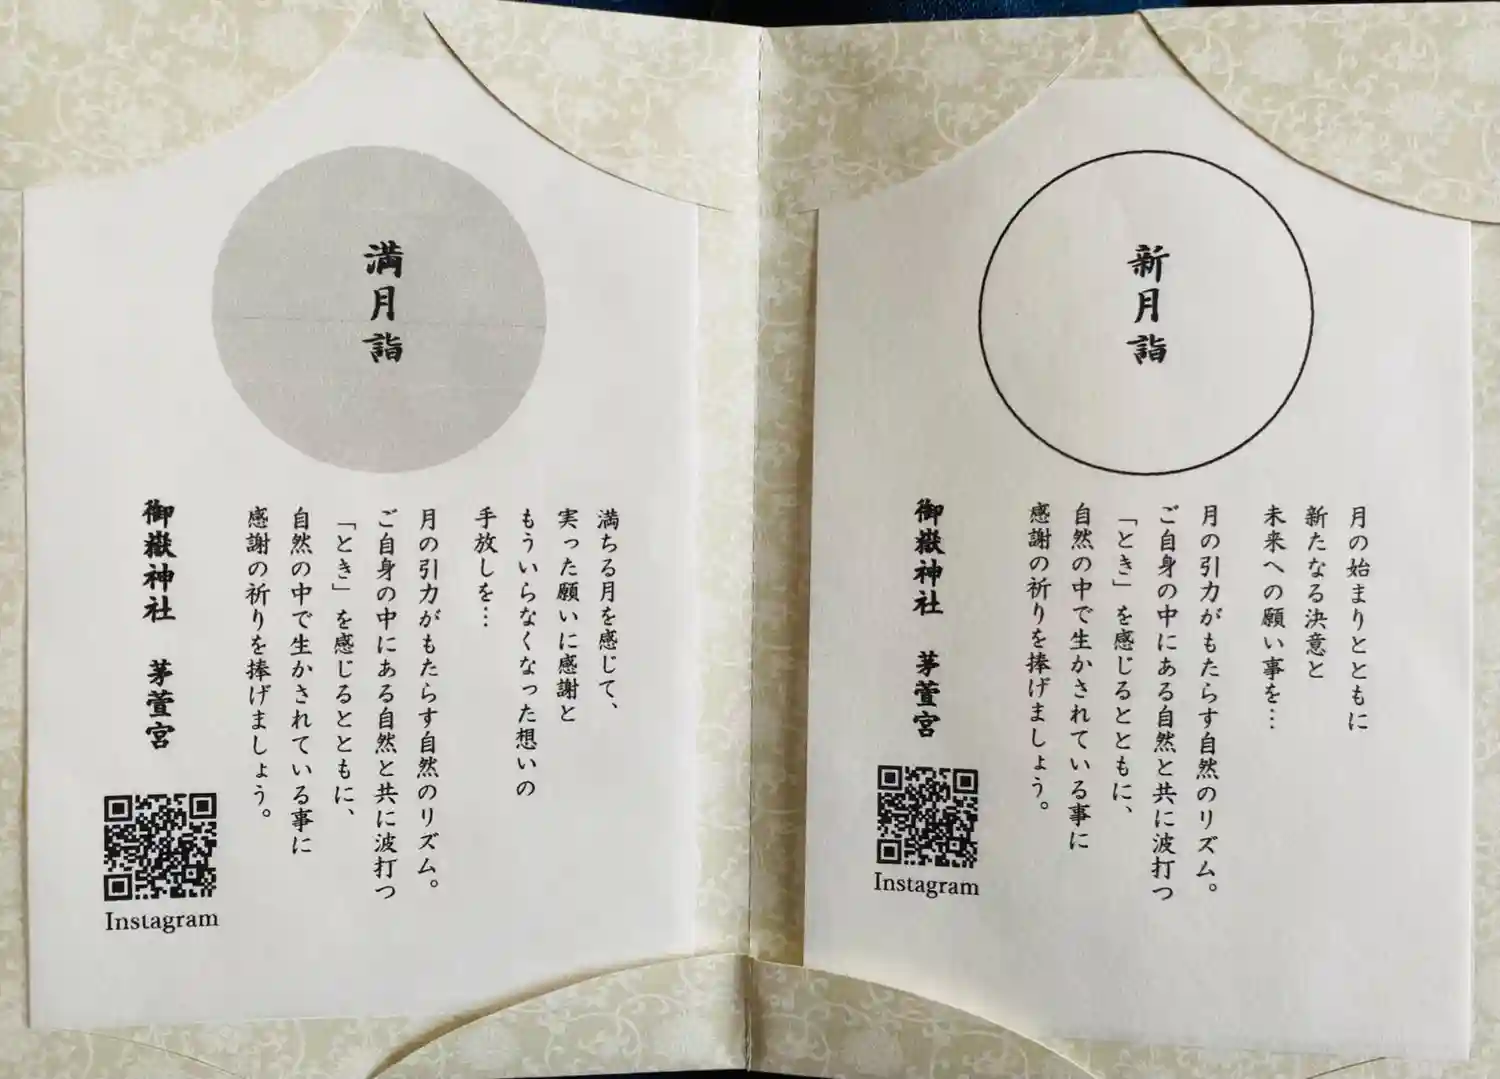 新月詣
月の始まりとともに
新たなる決意と
未来への願い事を…
月の引力がもたらす自然のリズム。
ご自身の中にある自然と共に波打つ
「とき」を感じるとともに、
自然の中で生かされている事に
感謝の祈りを捧げましょう。
御嶽神社 茅萱宮
Instagram
満月詣
満ちる月を感じて、
実った願いに感謝と
もういらなくなった想いの
手放しを…
月の引力がもたらす自然のリズム。
ご自身の中にある自然と共に波打つ
「とき」を感じるとともに、
自然の中で生かされている事に
感謝の祈りを捧げましょう。
御嶽神社 茅萱宮
Instagram